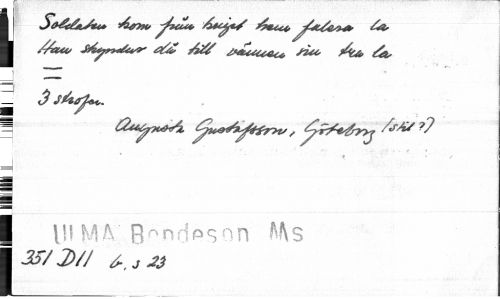 Soldaten kom från kriget hem falera la
Han skyndar då till vännen sin tra la
=
3 strofer.
Augusta Gustafsson, Göteborg (stil?)
ULMA Bondeson Ms
351 D11 6, s 23